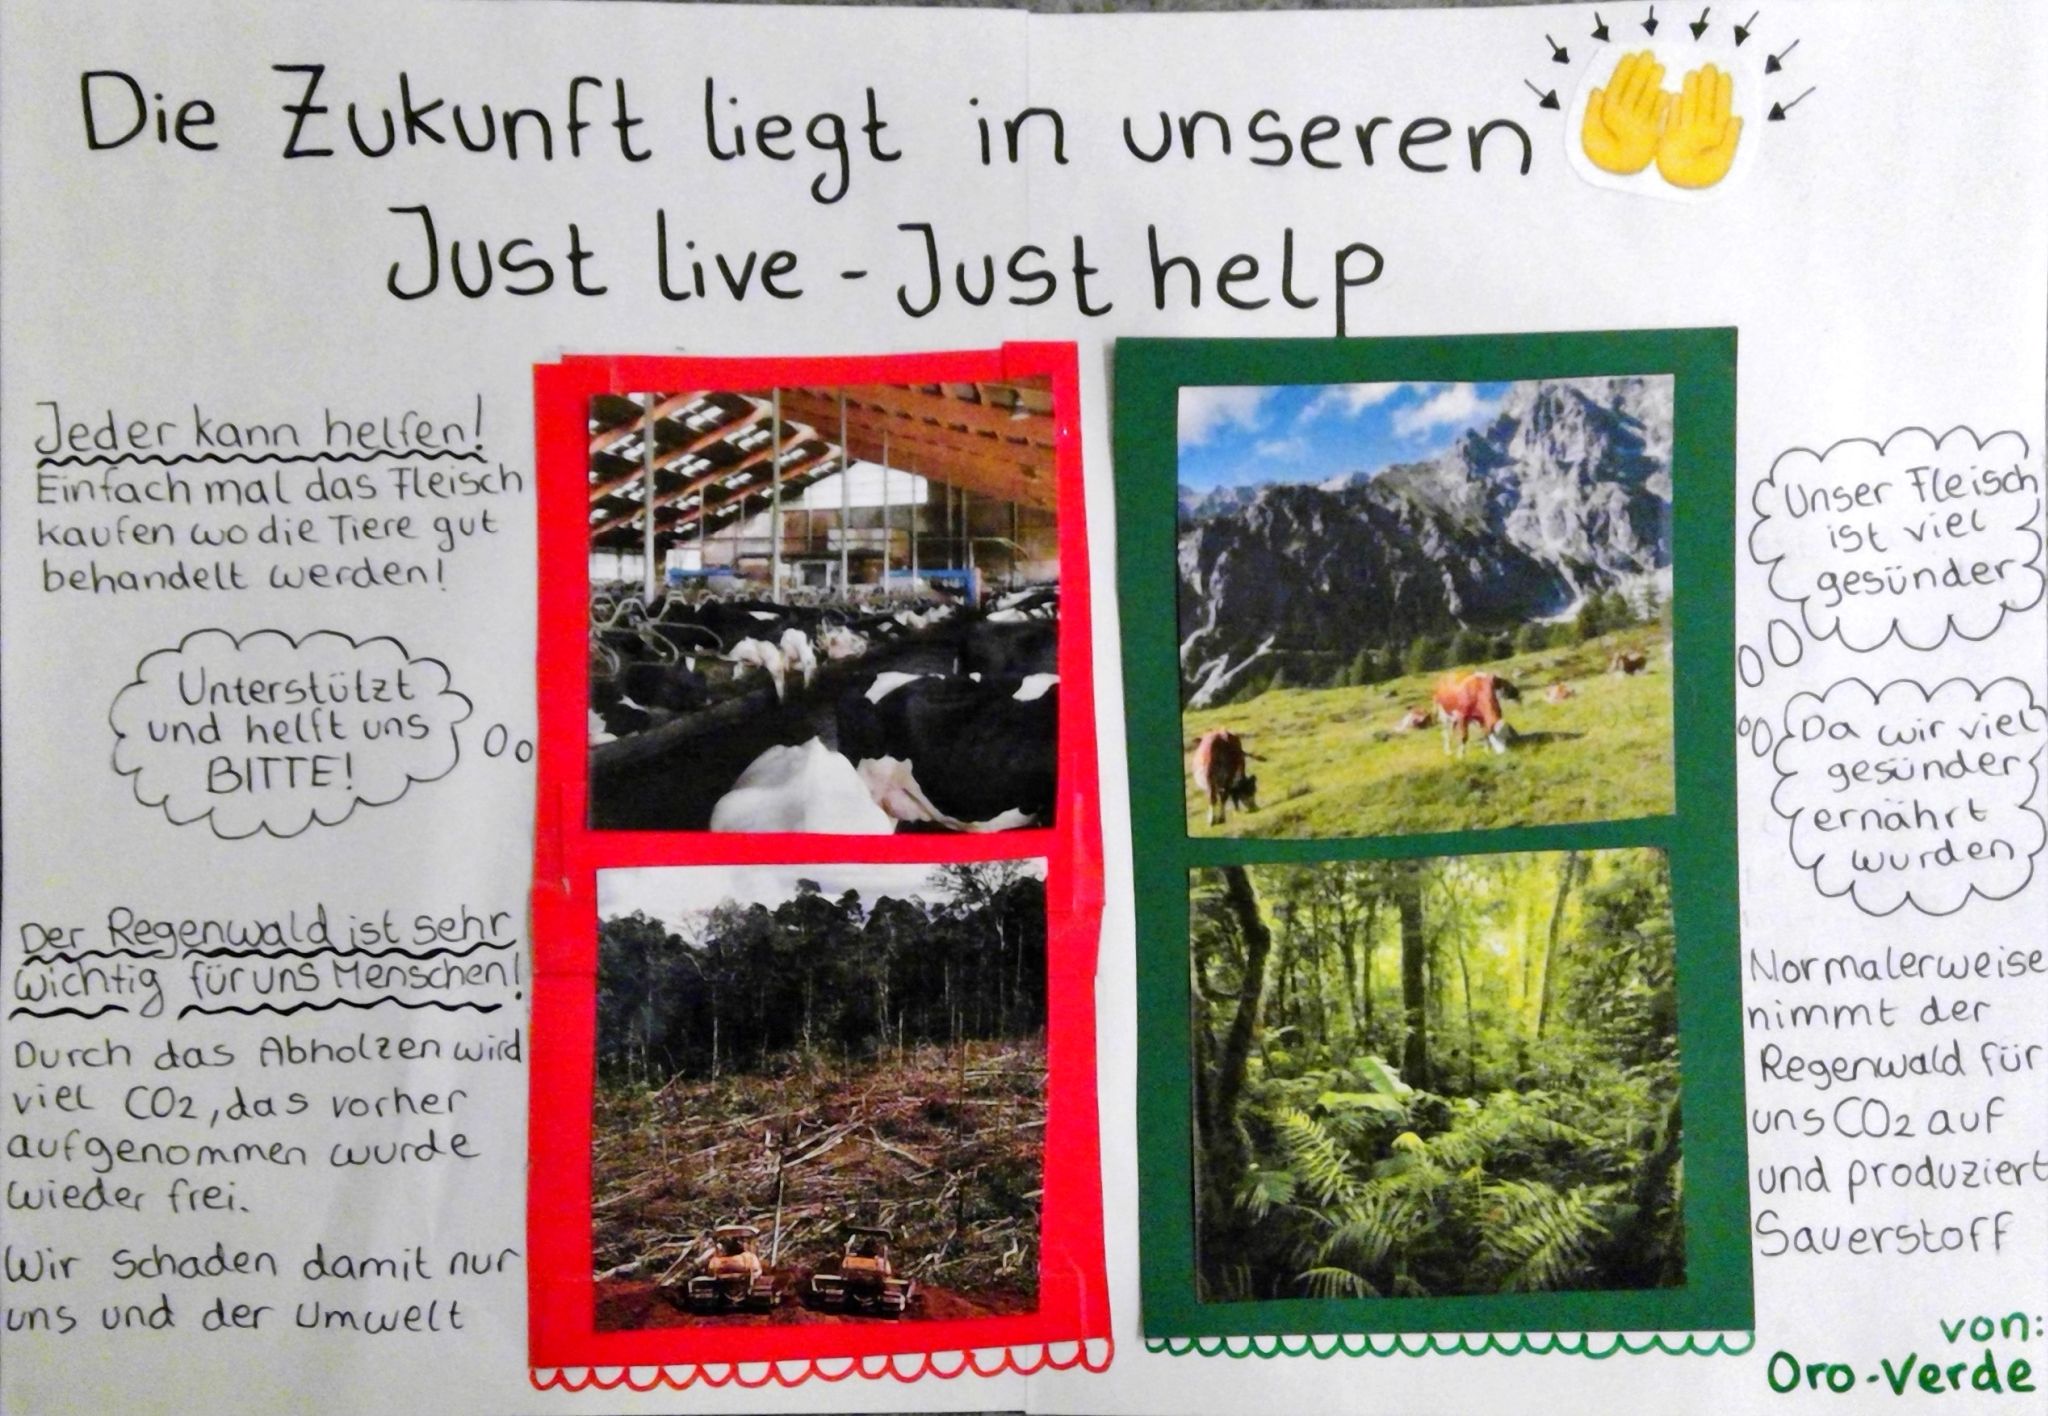 Die Zukunft liegt in unseren
Just live - Just help
Jeder kann helfen!
Einfach mal das Fleisch
kaufen wo die Tiere gut
behandelt werden!
Unterstützt
und helft uns
BITTE!
Der Regenwald ist sehr
wichtig für uns Menschen!
Durch das Abholzen wird
viel CO2, das vorher
aufgenommen wurde
wieder frei.
Wir schaden damit nur
uns und der Umwelt
Unser Fleisch
ist viel
gesünder
Da wir viel
gesünder
ernährt
wurden
Normalerweise
nimmt der
Regenwald für
uns CO2 auf
und produziert
Sauerstoff
von:
Oro-Verde